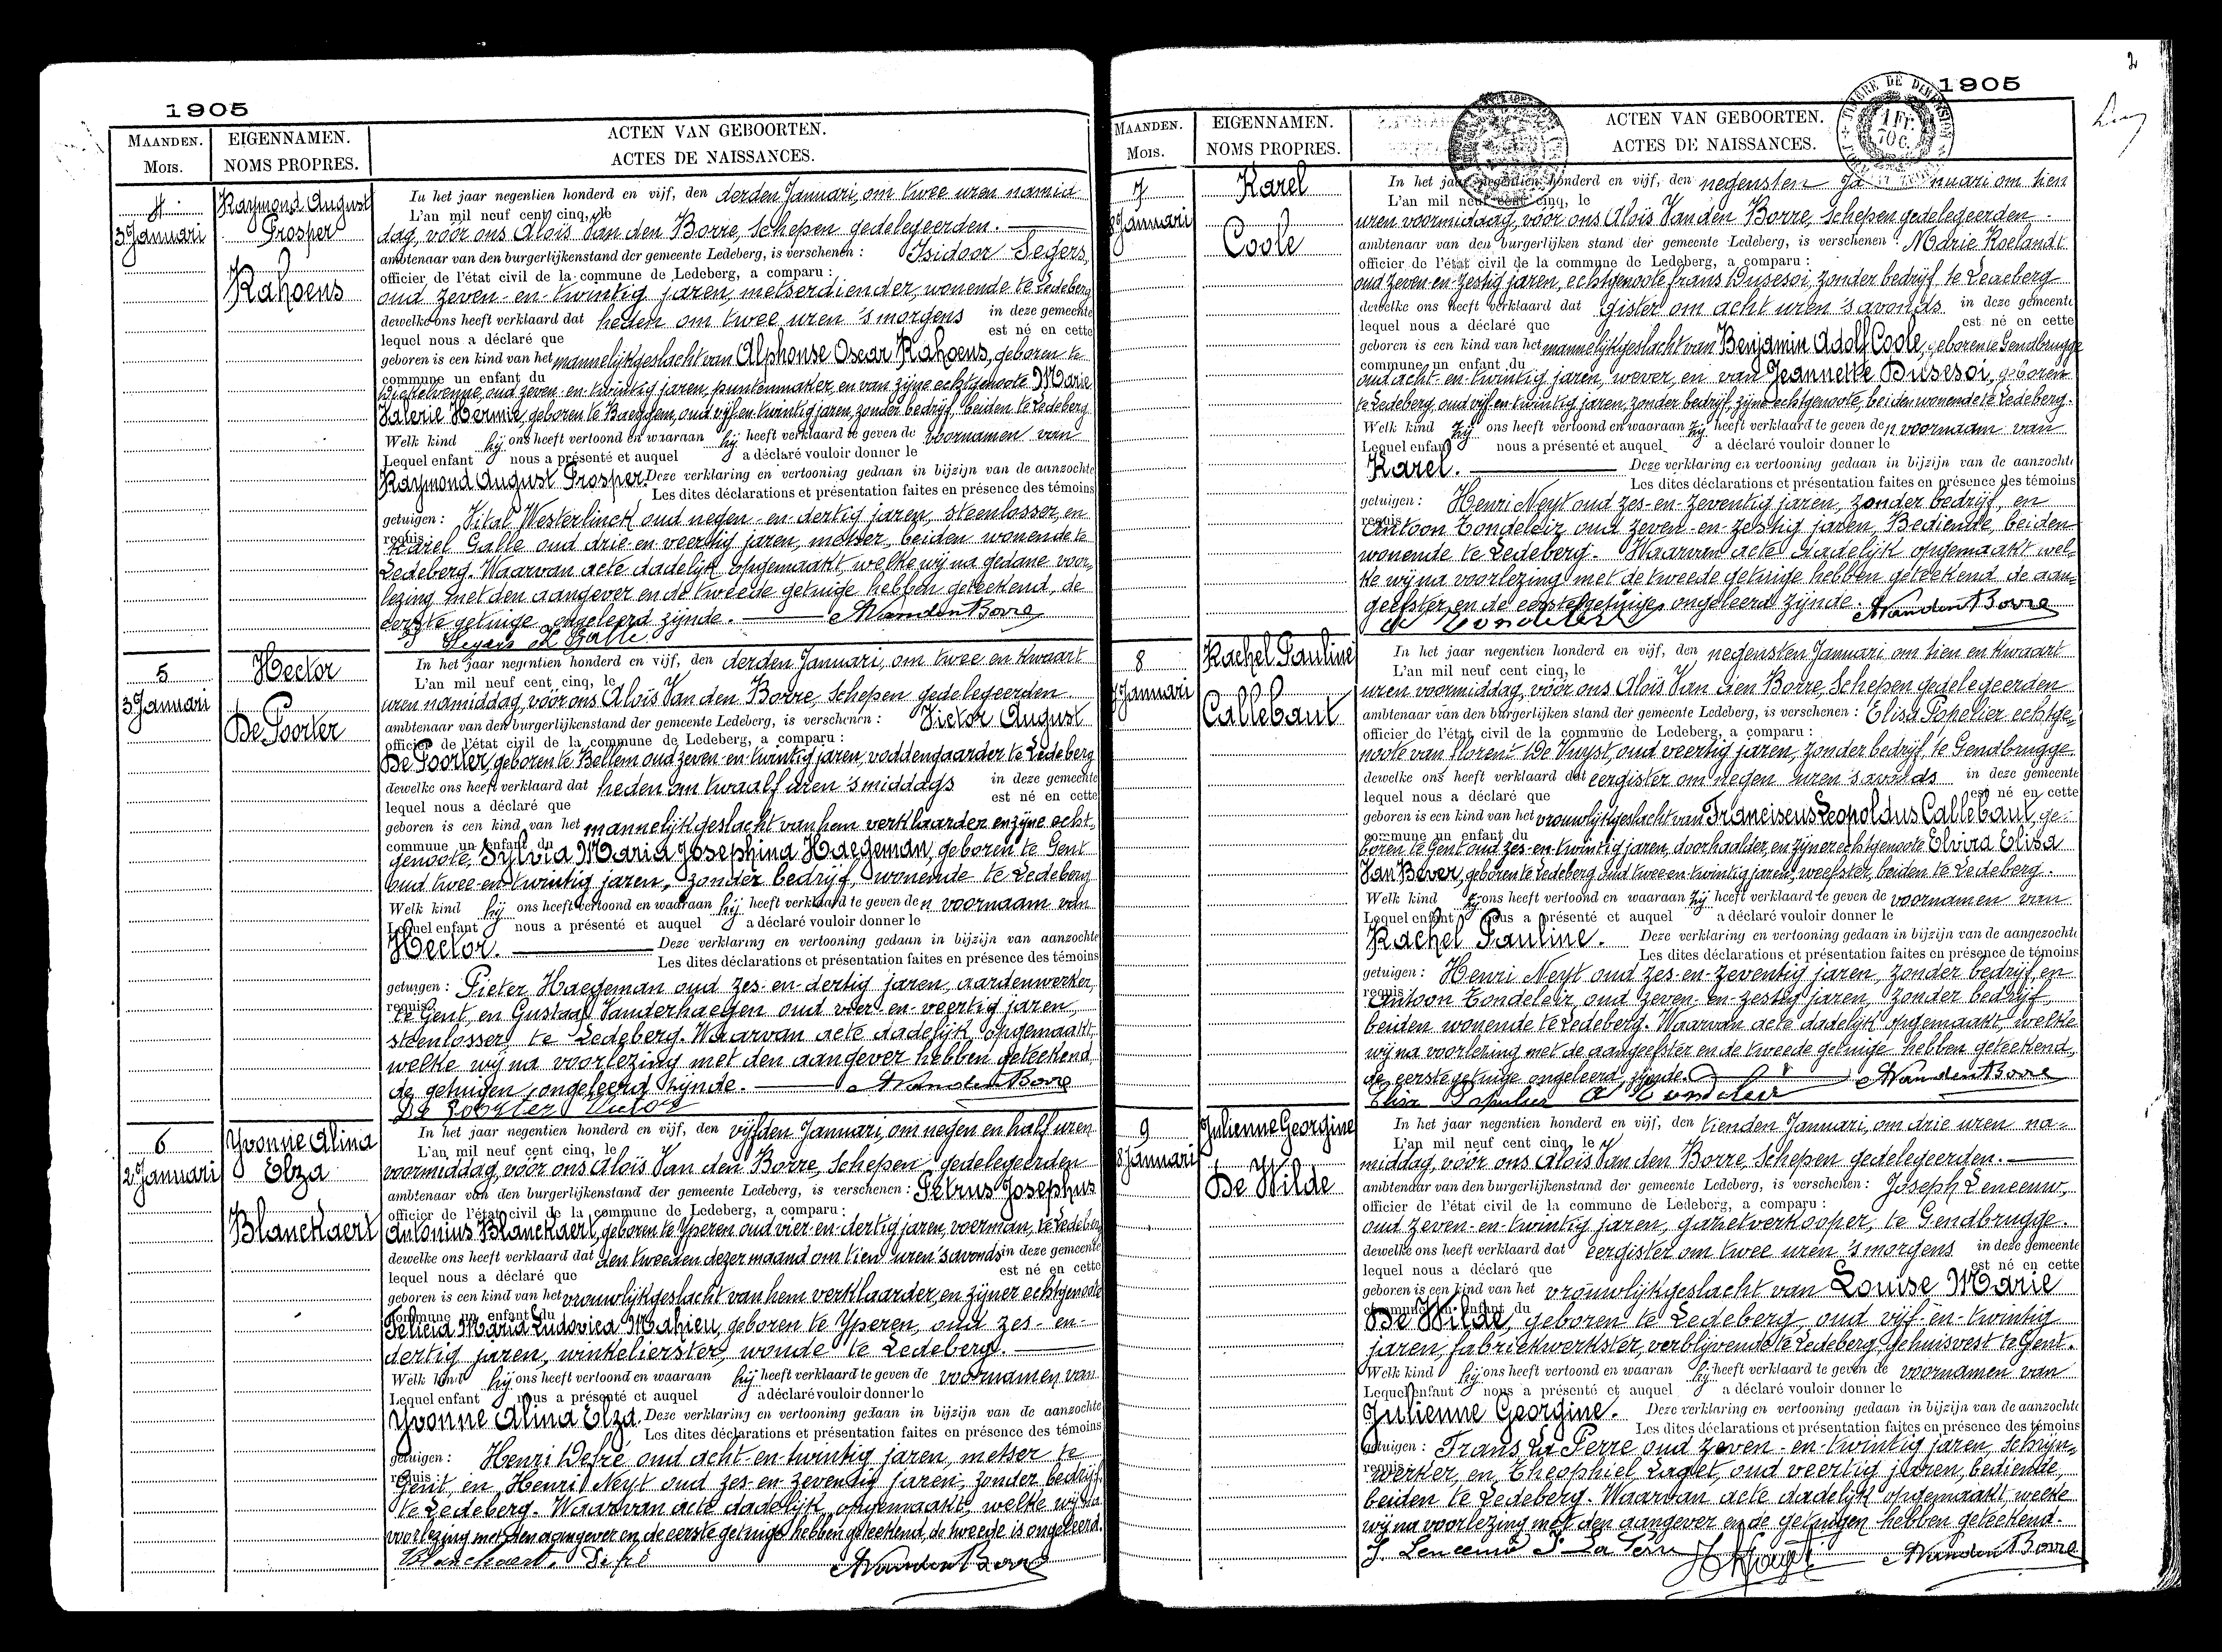 1905
MAANDEN.
Mois.
EIGENNAMEN.
NOMS PROPRES.
ACTEN VAN GEBOORTEN.
ACTES DE NAISSANCES.
4
3 Januari
Raymond August
Prosper
Rahoens
In het jaar negentien honderd en vijf, den derden Januari, om twee uren namid-
L'an mil neuf cent cinq, le
dag, vóór ons Aloïs Van den Borre, Schepen gedelegeerden.
ambtenaar van den burgerlijkenstand der gemeente Ledeberg, is verschenen : Isidoor Segers,
officier de l'état civil de la commune de Ledeberg, a comparu :
oud zeven-en-twintig jaren, metserdiender, wonende te Ledeberg
dewelke ons heeft verklaard dat heden om twee uren 's morgens in deze gemeente
lequel nous a déclaré que est né en cette
geboren is een kind van het mannelijk geslacht van Alphonse Oscar Rahoens, geboren te
commune un enfant du
oud zeven-en-twintig jaren, puntenmaker, en van zijne echtgenoote Marie
Valerie Hermie, geboren te Baeygem, oud vijf-en-twintig jaren, zonder bedrijf, beiden te Ledeberg
Welk kind hij ons heeft vertoond en waaraan hij heeft verklaard te geven de voornamen van
Lequel enfant nous a présenté et auquel a déclaré vouloir donner le
Raymond August Prosper. Deze verklaring en vertooning gedaan in bijzijn van de aanzochte
Les dites déclarations et présentation faites en présence des témoins
getuigen : Vital Westerlinck oud negen-en-dertig jaren, steenlosser, en
requis :
Karel Galle oud drie-en-veertig jaren, metser, beiden wonende te
Ledeberg. Waarvan acte dadelijk opgemaakt, welke wij na gedane voor-
lezing met den aangever en de tweede getuige hebben geteekend, de
eerste getuige ongeleerd zijnde. A Van den Borre
Segers K Galle
5
3 Januari
Hector
De Poorter
In het jaar negentien honderd en vijf, den derden Januari, om twee en kwaart
L'an mil neuf cent cinq, le
uren namiddag, vóór ons Aloïs Van den Borre, Schepen gedelegeerden
ambtenaar van den burgerlijkenstand der gemeente Ledeberg, is verschenen : Victor August
officier de l'état civil de la commune de Ledeberg, a comparu :
De Poorter, geboren te Bellem oud zeven-en-twintig jaren, voddengaarder te Ledeberg
dewelke ons heeft verklaard dat heden om twaalf uren 's middags in deze gemeente
lequel nous a déclaré que est né en cette
geboren is een kind van het mannelijk geslacht van hem verklaarder en zijne echt-
commune un enfant du
genoote, Sylvia Maria Josephina Haegeman, geboren te Gent
oud twee-en-twintig jaren, zonder bedrijf, wonende te Ledeberg
Welk kind hij ons heeft vertoond en waaraan hij heeft verklaard te geven den voornaam van
Lequel enfant nous a présenté et auquel a déclaré vouloir donner le
Hector. Deze verklaring en vertooning gedaan in bijzijn van aanzochte
Les dites déclarations et présentation faites en présence des témoins
getuigen : Pieter Haegeman oud zes-en-dertig jaren, aardenwerker,
requis :
te Gent, en Gustaaf Vanderhaegen oud vier-en-veertig jaren,
steenlosser, te Ledeberg. Waarvan acte dadelijk opgemaakt,
welke wij na voorlezing met den aangever hebben geteekend,
de getuigen ongeleerd zijnde. A Van den Borre
De Poorter Victor
6
2 Januari
Yvonne Alina
Elza
Blanckaert
In het jaar negentien honderd en vijf, den vijfden Januari, om negen en half uren
L'an mil neuf cent cinq, le
voormiddag, vóór ons Aloïs Van den Borre, Schepen gedelegeerden
ambtenaar van den burgerlijkenstand der gemeente Ledeberg, is verschenen : Petrus Josephus
officier de l'état civil de la commune de Ledeberg, a comparu :
Antonius Blanckaert, geboren te Yperen oud vier-en-dertig jaren, voerman, te Ledeberg
dewelke ons heeft verklaard dat den tweeden dezer maand om tien uren 's avonds in deze gemeente
lequel nous a déclaré que est né en cette
geboren is een kind van het vrouwlijk geslacht van hem verklaarder, en zijner echtgenoote
commune un enfant du
Felicia Maria Ludovica Mahieu, geboren te Yperen, oud zes-en-
dertig jaren, winkelierster, wonde te Ledeberg.
Welk kind hij ons heeft vertoond en waaraan hij heeft verklaard te geven de voornamen van
Lequel enfant nous a présenté et auquel a déclaré vouloir donner le
Yvonne Alina Elza. Deze verklaring en vertooning gedaan in bijzijn van de aanzochte
Les dites déclarations et présentation faites en présence des témoins
getuigen : Henri Defré oud acht-en-twintig jaren, metser te
requis :
Gent, en Henri Neyt oud zes-en-zeventig jaren, zonder bedrijf,
te Ledeberg. Waarvan acte dadelijk opgemaakt, welke wij na
voorlezing met den aangever en de eerste getuige hebben geteekend, de tweede is ongeleerd.
Blanckaert. Defré A Van den Borre
2
1905
TIMBRE DE DIMENSION
1 FR.
70 C.
MAANDEN.
Mois.
EIGENNAMEN.
NOMS PROPRES.
ACTEN VAN GEBOORTEN.
ACTES DE NAISSANCES.
7
8 Januari
Karel
Coole
In het jaar negentien honderd en vijf, den negensten Januari om tien
L'an mil neuf cent cinq, le
uren voormiddag, vóór ons Aloïs Van den Borre, Schepen gedelegeerden
ambtenaar van den burgerlijken stand der gemeente Ledeberg, is verschenen : Marie Roelandt
officier de l'état civil de la commune de Ledeberg, a comparu :
oud zeven-en-zestig jaren, echtgenoote frans Dusesoi, zonder bedrijf te Ledeberg
dewelke ons heeft verklaard dat gister om acht uren 's avonds in deze gemeente
lequel nous a déclaré que est né en cette
geboren is een kind van het mannelijk geslacht van Benjamin Adolf Coole, geboren te Gendbrugge
commune un enfant du
oud acht-en-twintig jaren, wever, en van Jeannette Dusesoi, geboren
te Ledeberg, oud vijf-en-twintig jaren, zonder bedrijf, zijne echtgenoote, beiden wonende te Ledeberg.
Welk kind zij ons heeft vertoond en waaraan zij heeft verklaard te geven den voornaam van
Lequel enfant nous a présenté et auquel a déclaré vouloir donner le
Karel. Deze verklaring en vertooning gedaan in bijzijn van de aanzochte
Les dites déclarations et présentation faites en présence des témoins
getuigen : Henri Neyt oud zes-en-zeventig jaren, zonder bedrijf, en
requis :
Antoon Tondeleir oud zeven-en-zestig jaren, Bediende, beiden
wonende te Ledeberg. Waarvan acte dadelijk opgemaakt wel-
ke wij na voorlezing met de tweede getuige hebben geteekend de aan-
geefster en de eerste getuige ongeleerd zijnde. A Van den Borre
A Tondeleir
8
7 Januari
Rachel Pauline
Callebaut
In het jaar negentien honderd en vijf, den negensten Januari om tien en kwaart
L'an mil neuf cent cinq, le
uren voormiddag, vóór ons Aloïs Van den Borre, Schepen gedelegeerden
ambtenaar van den burgerlijken stand der gemeente Ledeberg, is verschenen : Elisa Popelier echtge-
officier de l'état civil de la commune de Ledeberg, a comparu :
noote van Florent De Kuyst, oud veertig jaren, zonder bedrijf, te Gendbrugge
dewelke ons heeft verklaard dat eergister om negen uren 's avonds in deze gemeente
lequel nous a déclaré que est né en cette
geboren is een kind van het vrouwlijk geslacht van Franciscus Leopoldus Callebaut, ge-
commune un enfant du
boren te Gent oud zes-en-twintig jaren, doorhaalder, en zijner echtgenoote Elvira Elisa
Van Bever, geboren te Ledeberg oud twee-en-twintig jaren, weefster, beiden te Ledeberg.
Welk kind zij ons heeft vertoond en waaraan zij heeft verklaard te geven de voornamen van
Lequel enfant nous a présenté et auquel a déclaré vouloir donner le
Rachel Pauline. Deze verklaring en vertooning gedaan in bijzijn van de aangezochte
Les dites déclarations et présentation faites en présence de témoins
getuigen : Henri Neyt oud zes-en-zeventig jaren, zonder bedrijf, en
requis :
Antoon Tondeleir, oud zeven-en-zestig jaren, zonder bedrijf,
beiden wonende te Ledeberg. Waarvan acte dadelijk opgemaakt, welke
wij na voorlezing met de aangeefster en de tweede getuige hebben geteekend,
de eerste getuige ongeleerd zijnde. A Van den Borre
Elisa Popelier A Tondeleir
9
8 Januari
Julienne Georgine
De Wilde
In het jaar negentien honderd en vijf, den tienden Januari, om drie uren na-
L'an mil neuf cent cinq, le
middag, vóór ons Aloïs Van den Borre, Schepen gedelegeerden.
ambtenaar van den burgerlijkenstand der gemeente Ledeberg, is verschenen : Joseph Leneeuw,
officier de l'état civil de la commune de Ledeberg, a comparu :
oud zeven-en-twintig jaren, gazetverkooper, te Gendbrugge.
dewelke ons heeft verklaard dat eergister om twee uren 's morgens in deze gemeente
lequel nous a déclaré que est né en cette
geboren is een kind van het vrouwlijk geslacht van Louise Marie
commune un enfant du
De Wilde, geboren te Ledeberg oud vijf-en-twintig
jaren, fabriekwerkster, verblijvende te Ledeberg, gehuisvest te Gent.
Welk kind hij ons heeft vertoond en waaran hij heeft verklaard te geven de voornamen van
Lequel enfant nous a présenté et auquel a déclaré vouloir donner le
Julienne Georgine. Deze verklaring en vertooning gedaan in bijzijn van de aanzochte
Les dites déclarations et présentation faites en présence des témoins
getuigen : Frans La Perre oud zeven-en-twintig jaren, schrijn-
requis :
werker, en Theophiel Laget, oud veertig jaren, bediende,
beiden te Ledeberg. Waarvan acte dadelijk opgemaakt, welke
wij na voorlezing met den aangever en de getuigen hebben geteekend.
J. Leneeuw F La Perre A Van den Borre